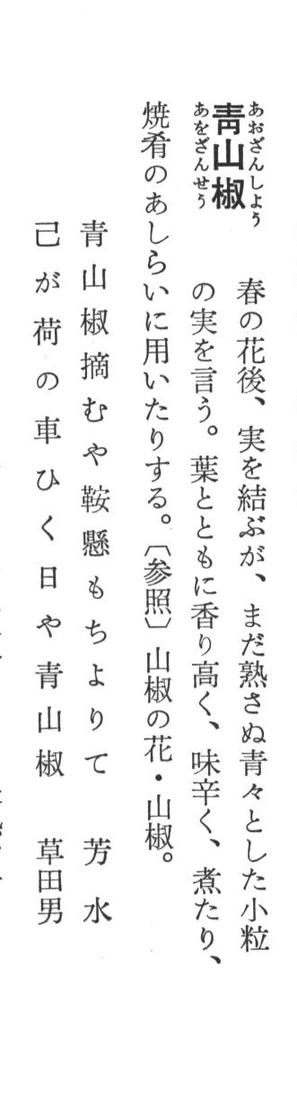 あおざんしよう
青山椒
あをざんせう
春の花後、実を結ぶが、まだ熟さぬ青々とした小粒
の実を言う。葉とともに香り高く、味辛く、煮たり、
焼肴のあしらいに用いたりする。〔参照〕山椒の花・山椒。
青山椒摘むや鞍懸もちよりて　芳水
己が荷の車ひく日や青山椒　草田男